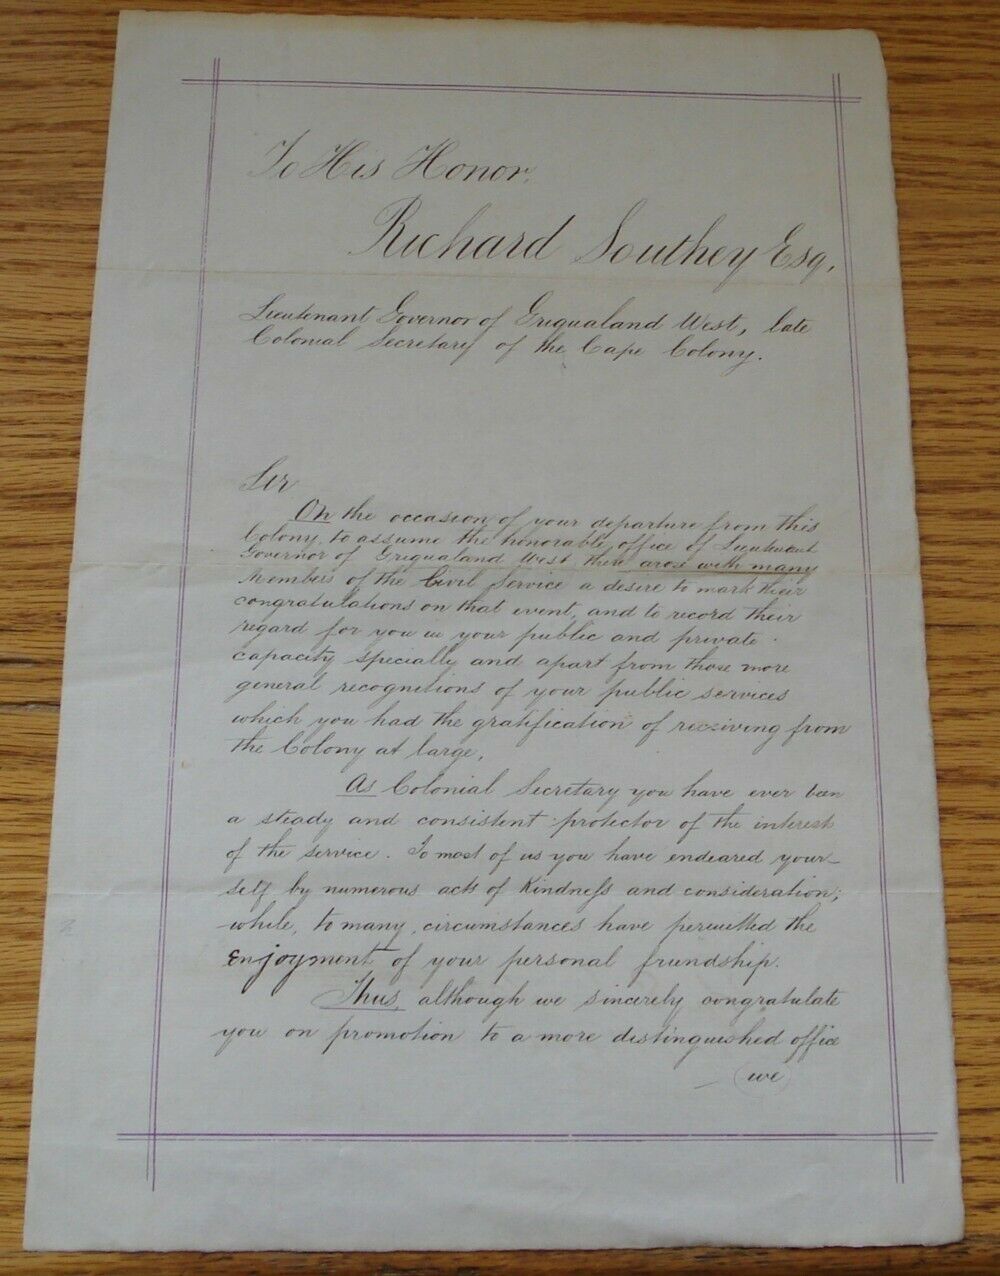 To His Honor,
Richard Southey Esq,
Lieutenant Governor of Griqualand West, late
Colonial Secretary of the Cape Colony.
Sir
On the occasion of your departure from this
Colony, to assume the honorable office of Lieutenant
Governor of Griqualand West, there arose with many
Members of the Civil Service a desire to mark their
congratulations on that event, and to record their
regard for you in your public and private
capacity specially and apart from those more
general recognitions of your public services
which you had the gratification of receiving from
the Colony at large,
As Colonial Secretary you have ever been
a steady and consistent protector of the interests
of the service. To most of us you have endeared your-
self by numerous acts of Kindness and consideration;
while, to many, circumstances have permitted the
enjoyment of your personal friendship.
Thus, although we sincerely congratulate
you on promotion to a more distinguished office
(we)